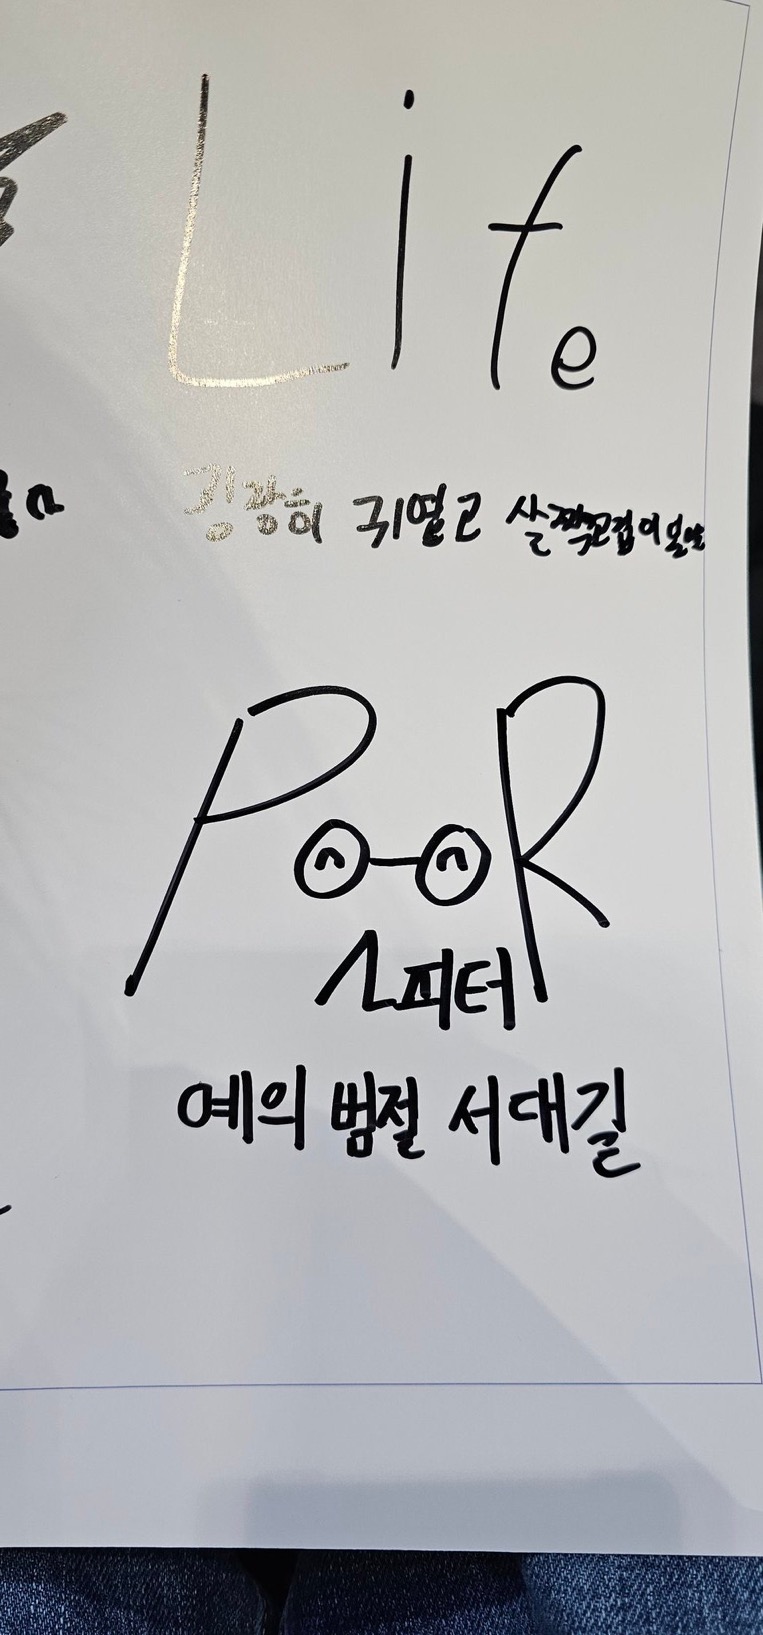 Life
김광희 귀열고 살짝꼬집어
PooR
스피터
예의 범절 서대길